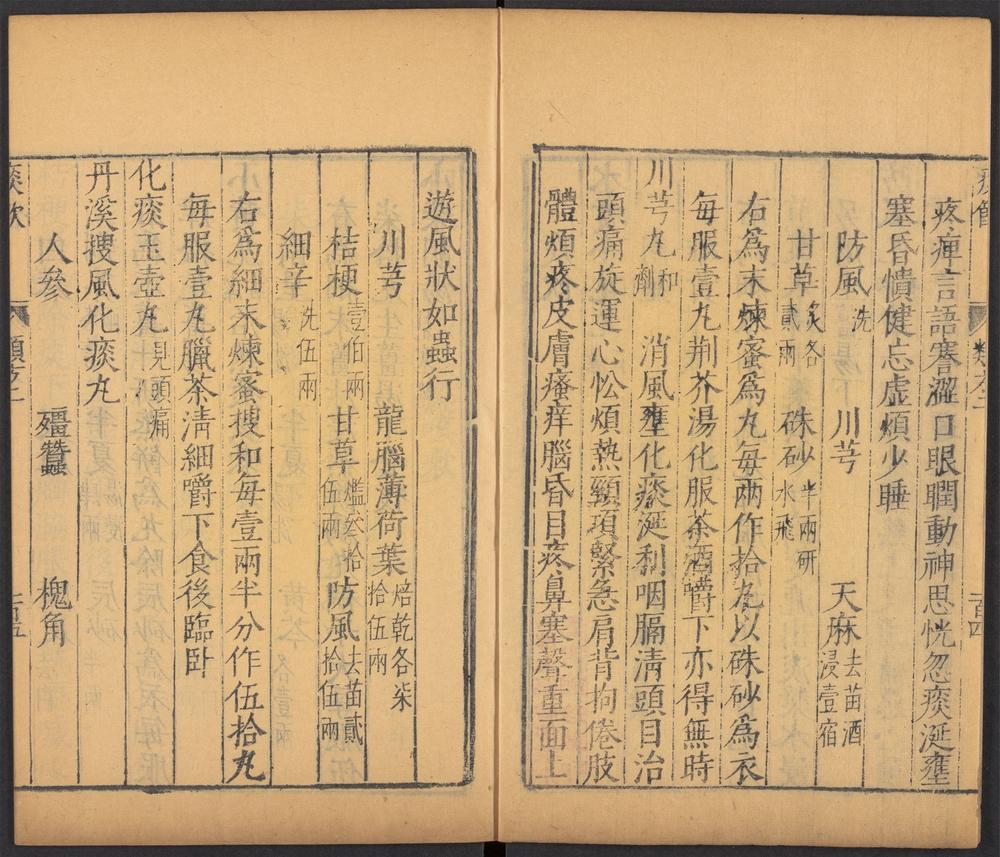 疼痺言語謇澀口眼瞤動神思恍忽痰涎壅
塞昏憒健忘虛煩少睡
防風洗 川芎 天麻去苗酒浸壹宿
甘草炙各貳兩 硃砂半兩研水飛
右爲末煉蜜爲丸每兩作拾丸以硃砂爲衣
每服壹丸荆芥湯化服茶酒嚼下亦得無時
川芎丸和劑 消風壅化痰涎利咽膈清頭目治
頭痛旋運心忪煩熱頸項緊急肩背拘倦肢
體煩疼皮膚瘙痒腦昏目疼鼻塞聲重面上
遊風狀如蟲行
川芎 龍腦薄荷葉焙乾各柒拾伍兩
桔梗壹伯兩 甘草爁叁拾伍兩 防風去苗貳拾伍兩
細辛洗伍兩
右爲細末煉蜜搜和每壹兩半分作伍拾丸
每服壹丸臘茶清細嚼下食後臨卧
化痰玉壺丸見頭痛
丹溪搜風化痰丸
人參 殭蠶 槐角